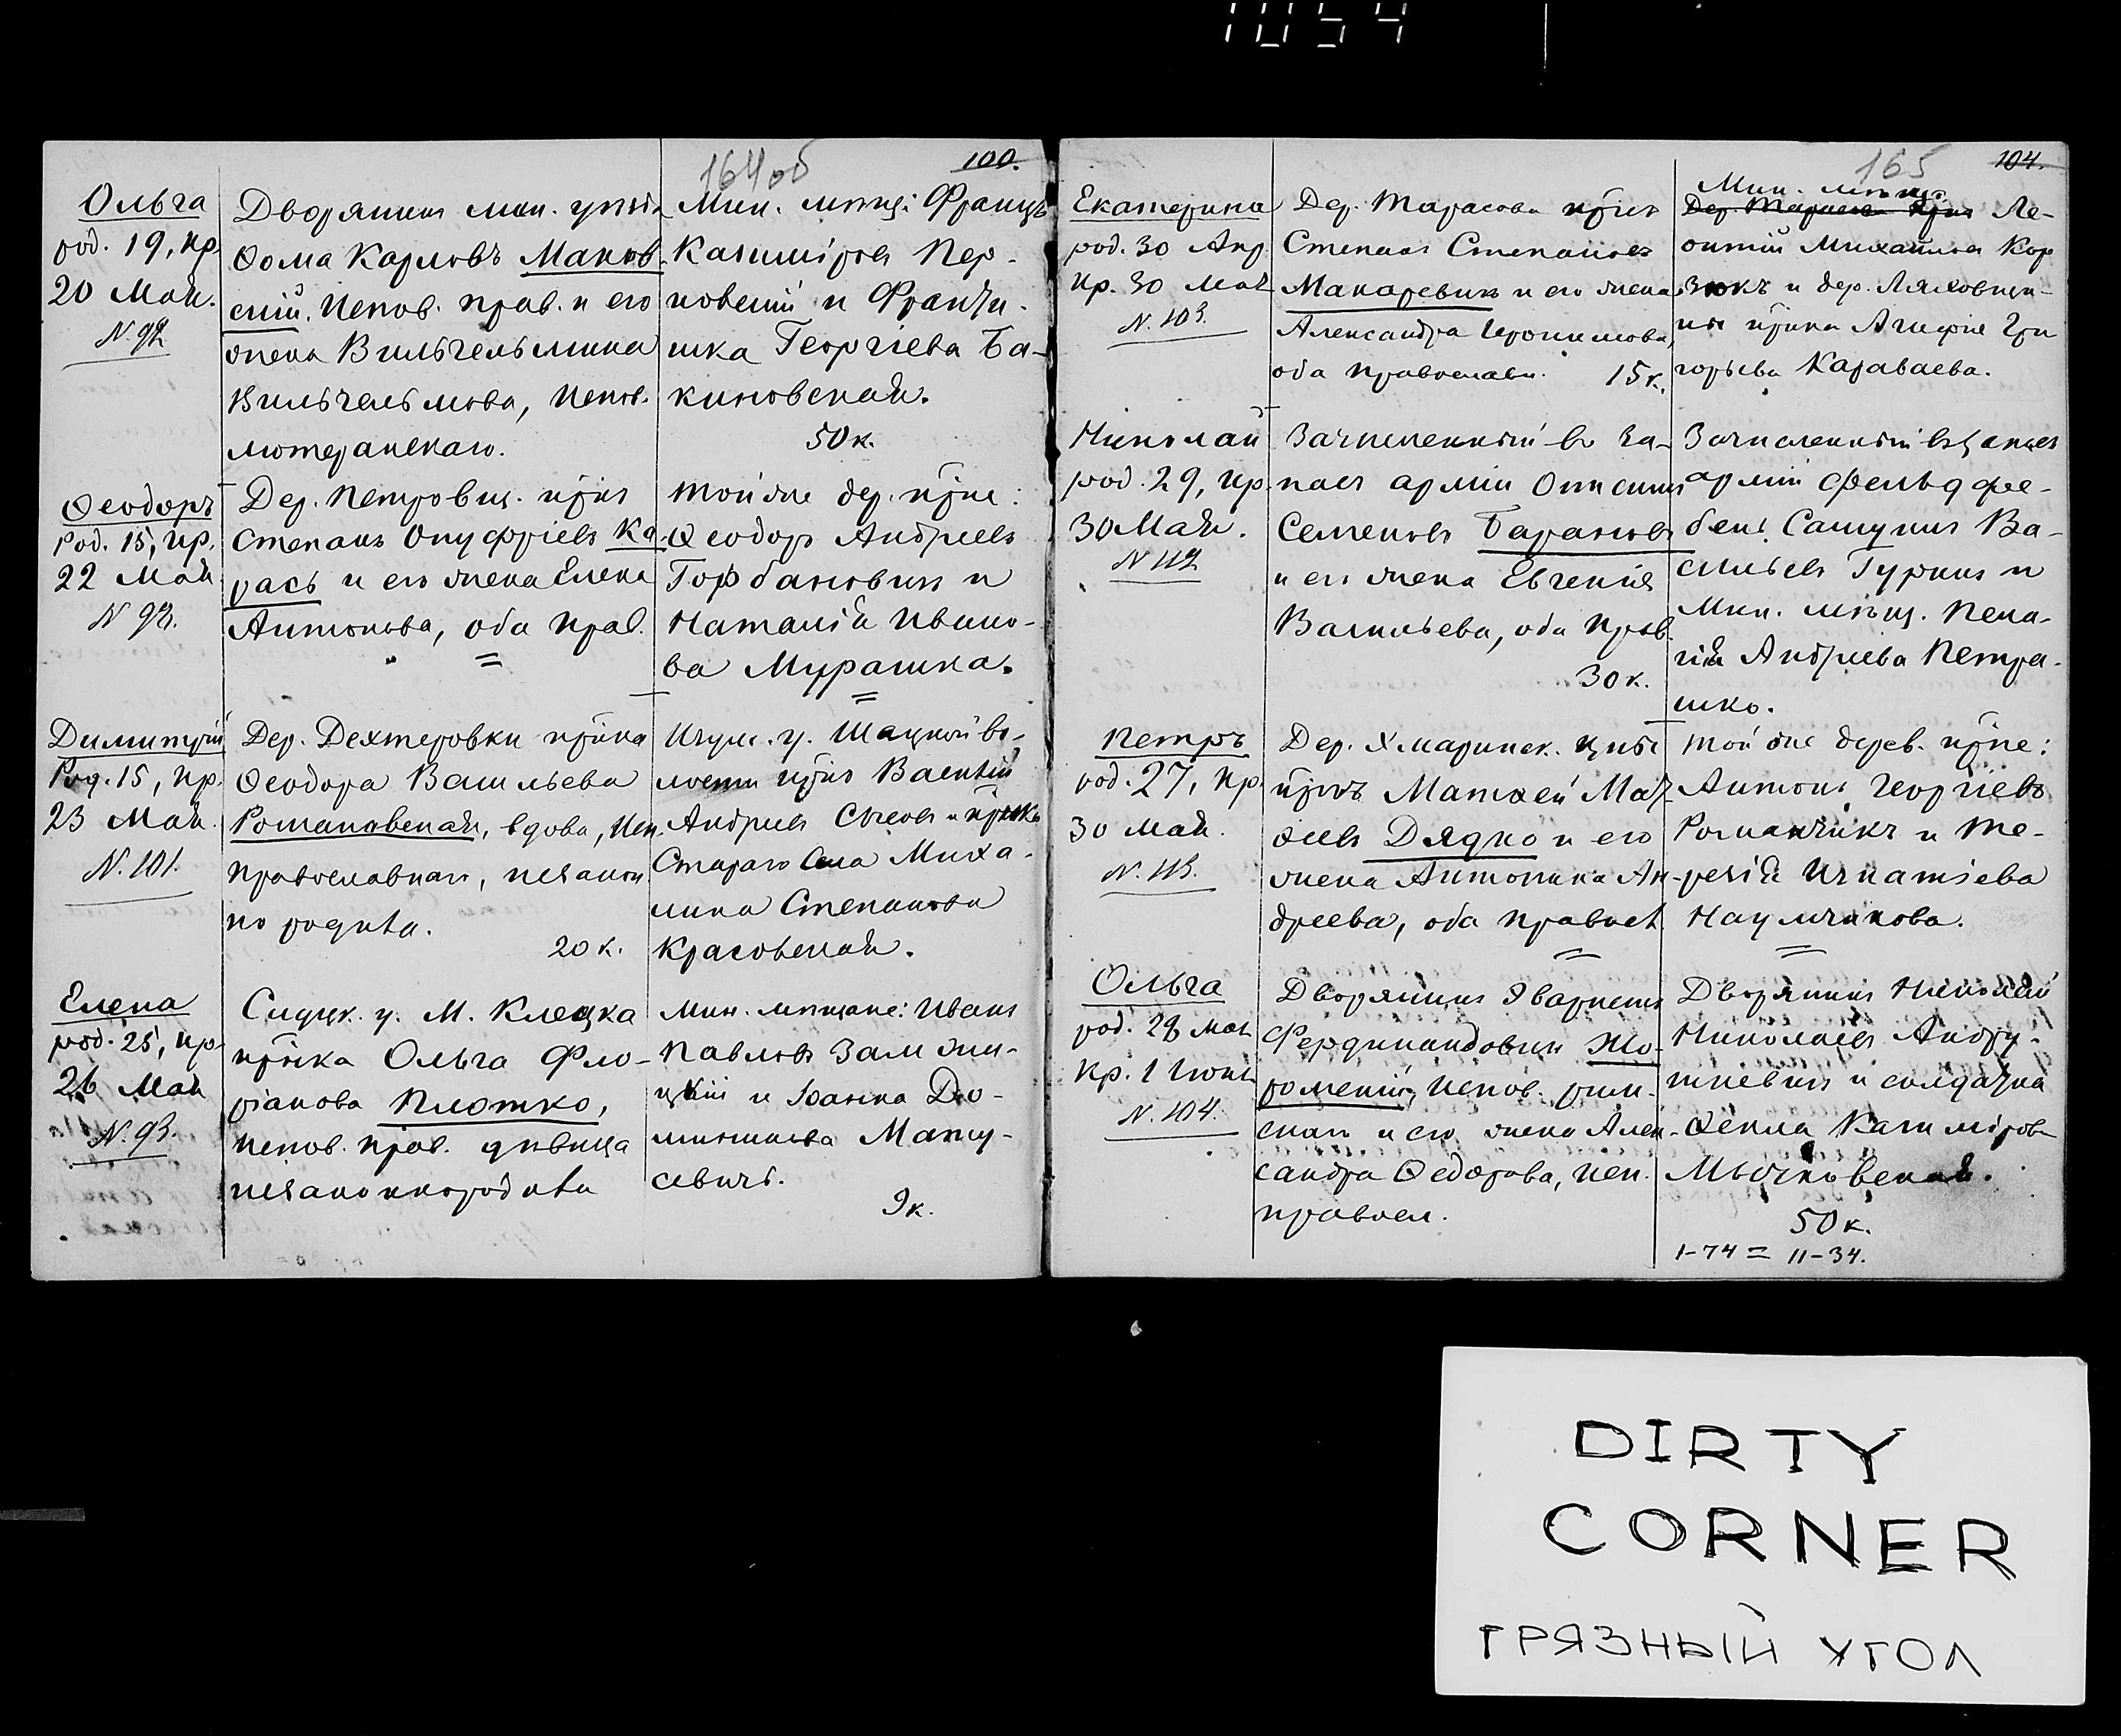 1054
164 об
100.
Ольга
род. 19, кр.
20 Мая.
N 92
Дворянинъ мин. уѣзда
Ѳома Карловъ Маков-
скій. Испов. прав. и его
жена Вильгельмина
Вильгельмова, испов.
лютеранскаго.
Мин. мѣщ: Францъ
Казиміровъ Пер-
ковскій и Франци-
шка Георгіева Ба-
киновская.
50 к.
Ѳеодоръ
Род. 15, кр.
22 Мая
N 98.
Дер. Петровщ. кр-нъ
Степанъ Онуфріевъ Ка-
рась и его жена Елена
Антонова, оба прав.
Той же дер. кр-не:
Ѳеодоръ Андреевъ
Горбановичъ и
Наталія Ивано-
ва Мурашка.
Димитрій
Род. 15, кр.
23 Мая.
N. 101.
Дер. Дехтеровки кр-нка
Ѳеодора Васильева
Романовская, вдова, исп.
православнаго, незакон
но родила.
20 к.
Игум. у. Шацкой во-
лости кр-нъ Василій
Андреевъ и кр-нка
Стараго Села Миха-
лина Степанова
Красовская.
Елена
род. 25, кр.
26 Мая
N. 93.
Слуцк. у. М. Клецка
кр-нка Ольга Фло-
ріанова Плотко,
испов. прав. дѣвица
незаконнородила
Мин. мѣщане: Иванъ
Павловъ Замжи-
цкій и Іоанна До-
миникова Мату-
севичъ.
9 к.
165
104.
Екатерина
род. 30 Апр.
кр. 30 Мая
N. 103.
Дер. Тарасова кр-нъ
Степанъ Степановъ
Макаревичъ и его жена
Александра Иеронимова,
оба православн. 15 к.
Мин. мѣщ.
Дер. Тарасова кр-нъ Ле-
онтій Михайловъ Кор
зюкъ и дер. Ляховщи-
ны кр-нка Агафія Гри
горьева Караваева.
Николай
род. 29, кр.
30 Мая.
N 112
Зачисленный въ за-
пасъ арміи Онисимъ
Семеновъ Барановъ
и его жена Евгенія
Васильева, оба прав.
30 к.
Зачисленный въ запасъ
арміи фельдфе-
бель Сатунинъ Ва-
сильевъ Гуринъ и
Мин. мѣщ. Пела-
гія Андреева Петра-
шко.
Петръ
род. 27, кр.
30 Мая.
N. 113.
Дер. Хмаринск.
кр-нъ Матѳей Мат-
ѳеевъ Дядко и его
жена Антонина Ан-
дреева, оба правосл.
Той же дерев. кр-не:
Антонъ Георгіевъ
Романчикъ и Те-
резія Игнатіева
Наумчикова.
Ольга
род. 28 мая
кр. 1 Іюня
N. 104.
Дворянинъ Эваристъ
Фердинандовичъ Жо-
ромскій, испов. рим-
скаго и его жена Алек-
сандра Ѳедорова, исп.
правосл.
Дворянинъ Николай
Николаевъ Андру-
шкевичъ и солдатка
Ѳекла Казимірова
Мычковская.
50 к.
1-74 = 11-34.
DIRTY
CORNER
ГРЯЗНЫЙ УГОЛ